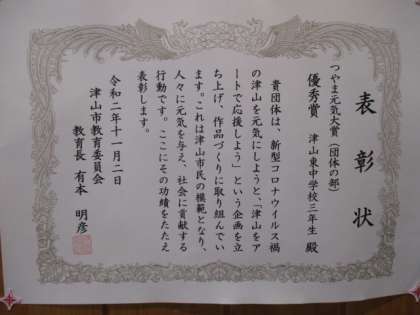 表彰状
つやま元気大賞（団体の部）
優秀賞　津山東中学校三年生　殿
貴団体は、新型コロナウイルス禍
の津山を元気にしようと、「津山をア
ートで応援しよう」という企画を立
ち上げ、作品づくりに取り組んでい
ます。これは津山市民の模範となり、
人々に元気を与え、社会に貢献する
行動です。ここにその功績をたたえ
表彰します。
令和二年十一月二日
津山市教育委員会
教育長　有本　明彦